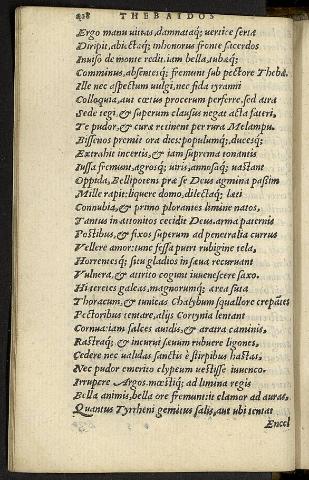 438 THEBAIDOS
Ergo manu uittas, damnataq; uertice serta
Diripit, abiectaq; inhonorus fronte sacerdos
Inuiso de monte redit. iam bella, tubaeq;
Comminus, absentesq; fremunt sub pectore Thebae.
Ille nec aspectum uulgi, nec fida tyranni
Colloquia, aut coetus procerum perferre, sed atra
Sede tegi, & superum clausus negat acta fateri,
Te pudor, & curae retinent per rura Melampu.
Bissenos premit ora dies: populumq;, ducesq;
Extrahit incertis, & iam suprema tonantis
Iussa fremunt, agrosq; uiros, annosaq; uastant
Oppida, Bellipotens prae se Deus agmina passim
Mille rapit: liquere domos, dilectaq; laeti
Connubia, & primo plorantes limine natos,
Tantus in attonitos cecidit Deus. arma paternis
Postibus, & fixos superum ad penetralia currus
Vellere amor: tunc fessa putri rubigine tela,
Horrentesq; situ gladios in saeua recuruant
Vulnera, & attrito cogunt iuuenescere saxo.
Hi teretes galeas, magnorumq; aerea suta
Thoracum, & tunicas Chalybum squallore crepantes
Pectoribus tentare, alijs Cortynia lentant
Cornua: iam falces auidis, & aratra caminis,
Rastraq;, & incurui saeuum rubuere ligones,
Caedere nec ualidas sanctis è stirpibus hastas,
Nec pudor emerito clypeum uestisse iuuenco.
Irrupere Argos. moestiq; ad limina regis
Bella animis, bella ore fremunt: it clamor ad auras,
Quantus Tyrrheni gemitus salis, aut ubi tentat
Encel